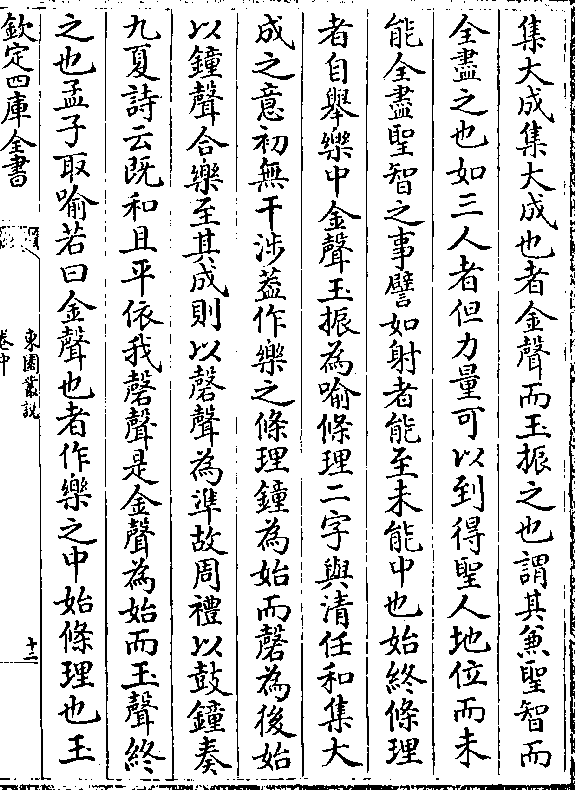 集大成集大成也者金聲而玉振之也謂其兼聖智而
全盡之也如三人者但力量可以到得聖人地位而未
能全盡聖智之事譬如射者能至未能中也始終條理
者自舉樂中金聲玉振為喻條理二字與清任和集大
成之意初無干涉葢作樂之條理鐘為始而磬為後始
以鐘聲合樂至其成則以磬聲為準故周禮以鼓鐘奏
九夏詩云既和且平依我磬聲是金聲為始而玉聲終
之也孟子取喻若曰金聲也者作樂之中始條理也玉
欽定四庫全書
東園叢説
卷中
十二